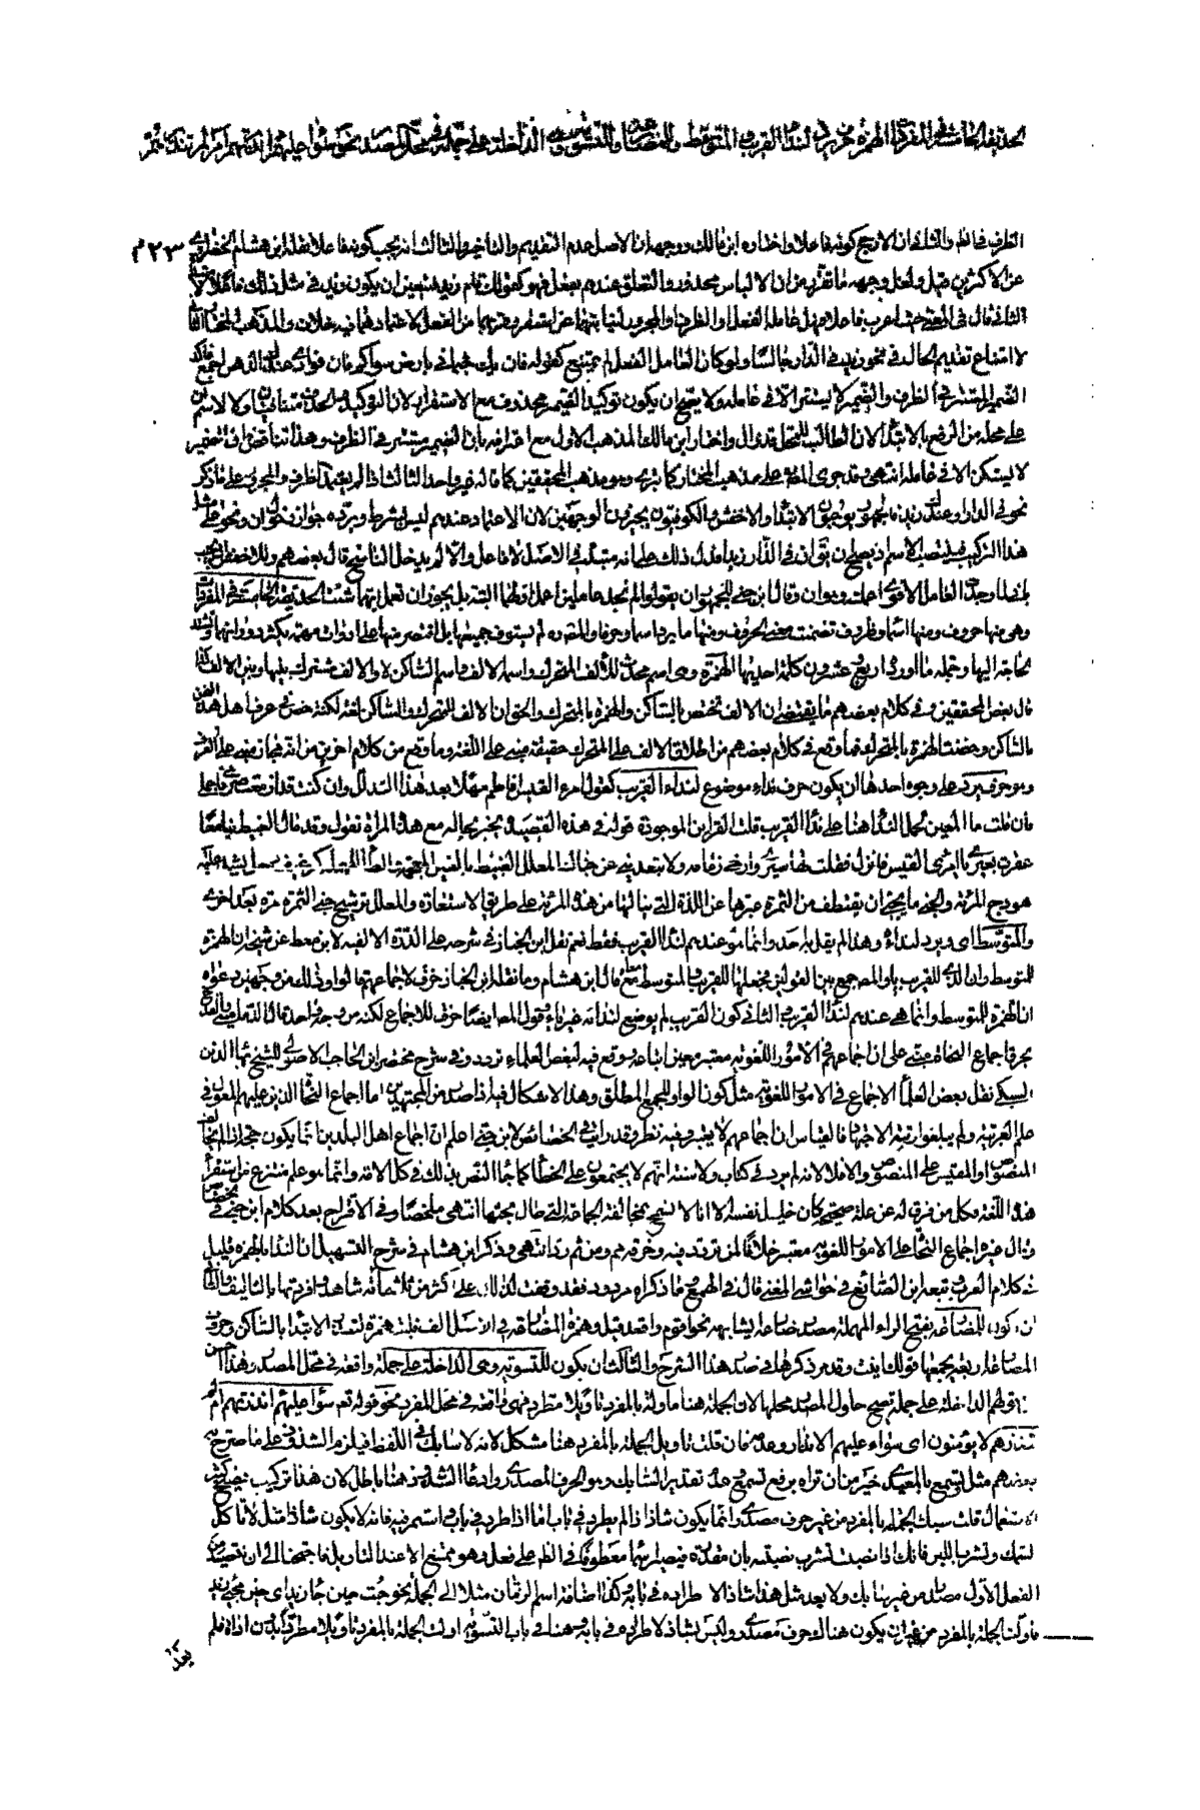 الحديقة الخامسة في المفردات الهمزة حرف يرد لنداء القريب والمتوسط وللمضارعة وللتسوية وهى الداخلة على جملة في محل المصدر نحو سواء عليهم ءانذرتهم ام لم تنذرهم
الظرف في الدار والثاني ان الارجح كونه فاعلا واختاره ابن مالك ووجهه ان الاصل عدم التقديم والتاخير والثالث انه يجب كونه فاعلا نقله ابن هشام الخضراوى
٢٢٣
عن الاكثرين قيل ولعل وجهه ما تقرر من ان الالباس محذور والتعلق عندهم بفعل فهو كقولك قام زيد فتعين ان يكون زيد في مثل ذلك فاعلا
الثانى قال في المغنى حيث اعرب فاعلا فهل عامله الفعل او الظرف او المجرور لنيابتهما عن استقر وقربهما من الفعل لاعتمادهما فيه خلاف والمذهب المختار الثانى
لامتناع تقديم الحال في نحو زيد في الدار جالسا ولو كان العامل الفعل لم يمتنع كقوله فان يك جثمانى بارض سواكم فان فؤادى عندك الدهر اجمع فاكد
الضمير المستتر في الظرف والضمير لا يستتر الا في عامله ولا يصح ان يكون توكيدا لضمير محذوف مع الاستقرار لان التوكيد والحذف متنافيان ولا لاسم ان
على محله من الرفع بالابتداء لان الطالب للمحل قد زال واختار ابن مالك المذهب الاول مع اعترافه بان الضمير مستتر في الظرف وهذا تناقض فان الضمير
لا يستكن الا في عامله انتهى وقد جرى المص على مذهب المختار كما ترى وهو مذهب المحققين كما قاله غير واحد الثالث اذا لم يعتمد الظرف والمجرور على ما ذكر
نحو في الدار او عندك زيد فالجمهور يوجبون الابتداء والاخفش والكوفيون يجيزون الوجهين لان الاعتماد عندهم ليس بشرط ويرده جواز في
هذا التركيب فينصب الاسم
باضا وجد العامل الاقوى اعملته وهو ان وقال ابن جنى للجمهور ان يقولوا لم نجد عاملين اعمل اضعفهما البتة بل يجوز ان تعمل ايهما شئت الحديقة الخامسة في المفردات
وهى منها حروف ومنها اسماء وظروف تضمنت معنى الحروف ومنها ما يرد اسما وحرفا والمص ره لم يستوف جميعها بل اقتصر منها على ادوات مهمة يكثر دورانها وتشتد
الحاجة اليها وجملة ما اورده اربع وعشرون كلمة احديها الهمزة وهى اسم محدث للالف المتحرك واسمه الالف واسم الساكن لا والالف مشترك بينها وبين الالف كذا
قال بعض المحققين وفي كلام بعضهم ما يقتضى ان الالف تختص بالساكن والهمزة بالمتحرك والحق ان الالف للمتحرك والساكن لغة لكنه خص في عرف اهل هذا الفن
بالساكن وخصت الهمزة بالمتحرك فما وقع في كلام بعضهم من اطلاق الالف على المتحرك حقيقة مبنى على اللغة وما وقع من كلام اخرين من انه مجاز مبنى على العرف
وهو حرف يرد على وجوه احدها ان يكون حرف نداء موضوع لنداء القريب كقول امرء القيس افاطم مهلا بعد هذا التدلل وان كنت قد ازمعت صرمى فاجملى
فان قلت ما المعين لحمل النداء هنا على نداء القريب قلت القراين الموجودة قوله في هذه القصيدة يخبر بحاله مع هذه المراة تقول وقد مال الغبيط بنا معا
عقرت بعيرى يا امرئ القيس فانزل فقلت لها سيرى وارخى زمامه ولا تبعدينى عن جناك المعلل الغبيط بالغين المعجمة
هودج المرئة والجنى ما يجتنى ان يقتطف من الثمرة عبر بها عن اللذة التى ينالها من هذه المرئة على طريق الاستعارة والمعلل ترشيح جنى الثمرة مرة بعد اخرى
والمتوسط اى ويرد لنداءه وهذا لم يقل به احد وانما هو عندهم لنداء القريب فقط نعم نقل ابن الخباز في شرحه على الدرة الالفية لابن معط عن شيخه ان الهمزة
للمتوسط وان الذى للقريب يا والمص جمع بين القولين فجعلها للقريب والمتوسط معا قال ابن هشام وما نقله ابن الخباز خرق لاجماعهم قالوا وذلك من وجهين دعواه
ان الهمزة للمتوسط وانما هى عندهم لنداء القريب الثانى كون القريب لم يوضع لندائه غير يا وقول المص ايضا خرق للاجماع لكنه من وجه واحد
بحرق اجماع النحاة مبنى على ان اجماعهم في الامور اللغوية معتبر وجب اتباعه ووقع فيه لبعض العلماء تردد وفي شرح مختصر ابن الحاجب الاصولى للشيخ بهاء الدين
السبكى نقل بعض العلماء الاجماع في الامور اللغوية مثل كون الواو للجمع المطلق وهذا لا اشكال فيه اذا صدر من المجتهدين اما اجماع النحاة الذين عليهم المعول في
علم العربية ولم يبلغوا رتبة الاجتهاد فالقياس ان اجماعهم لا يعتبر وفيه نظر وقد رايت في الخصائص لابن جنى اعلم ان اجماع اهل البلدين انما يكون حجة اذا لم يخالف
المنصوص او المقيس على المنصوص والا فلا لانه لم يرد في كتاب ولا سنة انهم لا يجتمعون على الخطأ كما جاء النص بذلك في كل الامة وانما هو علم منتزع من استقراء
هذه اللغة فكل من فرق له عن علة صحيحة كان خليل نفسه الا انا لا نسمح بمخالفة الجماعة التى طال بحثها انتهى ملخصا وفي الاقتراح بعد كلام ابن جنى
وقال غيره اجماع النحاة على الامور اللغوية معتبر خلافا لمن تردد فيه وخرقه مم ومن ثم رد انتهى وذكر ابن هشام في شرح التسهيل ان النداء بالهمزة قليل
في كلام العرب وتبعه ابن الصائغ في حواشى المغنى قال في الهمع وما ذكراه مردود فقد وقفت لذلك على اكثر من ثلثمائة شاهد وافردتها بالتاليف والثانى
ان يكون للمضارعة بفتح الراء المهملة مصدر ضارعه يشابهه نحو اقوم واقعد قيل وهمزة المضارعة في الاصل الف قلبت همزة لتعذر الابتداء بالساكن وحروف
المضارعة اربعة يجمعها قولك انيت وقد مر ذكرها في صدر هذا الشرح والثالث ان يكون للتسوية وهى الداخلة على جملة واقعة في محل المصدر وهذا احسن
من قولهم الداخلة على جملة يصح حلول المصدر محلها لان الجملة هنا مأولة بالمفرد تأويلا مطردا فهى واقعة في محل المفرد نحو قوله تع سواء عليهم ءانذرتهم ام لم
تنذرهم لا يؤمنون اى سواء عليهم الانذار وعدمه فان قلت تاويل الجملة بالمفرد هنا مشكل لانه لا سابك في اللفظ فيلزم الشذوذ على ما صرح به
بعضهم مثل تسمع بالمعيدى خير من ان تراه برفع تسمع وعدم تقدير السابك وهو الحرف المصدرى وادعاء الشذوذ هنا باطل لان هذا تركيب فصيح كثير
الاستعمال قلت سبك الجملة بالمفرد من غير حرف مصدرى انما يكون شاذا اذا لم يطرد في باب اما اذا اطرد في باب واستمر فيه فانه لا يكون شاذا مثل لا تاكل
السمك وتشرب اللبن فانك اذا نصبت تشرب نصبته بان مقدرة فيصير اسما معطوفا في الظاهر على فعل وهو ممتنع الا عند التاويل فاحتجنا الى ان نتصيد من
الفعل الاول مصدرا من غير سابك ولا يعد مثل هذا شاذا لاطراده في بابه وكذا اضافة اسم الزمان مثلا الى الجملة نحو جئت حين جاء زيد اى حين مجئ زيد
فاولت الجملة بالمفرد من غير ان يكون هناك حرف مصدرى وليس بشاذ لاطراده في بابه وهنا في باب التسوية اولت الجملة بالمفرد تأويلا مطردا بدون اداة فلم
يعد